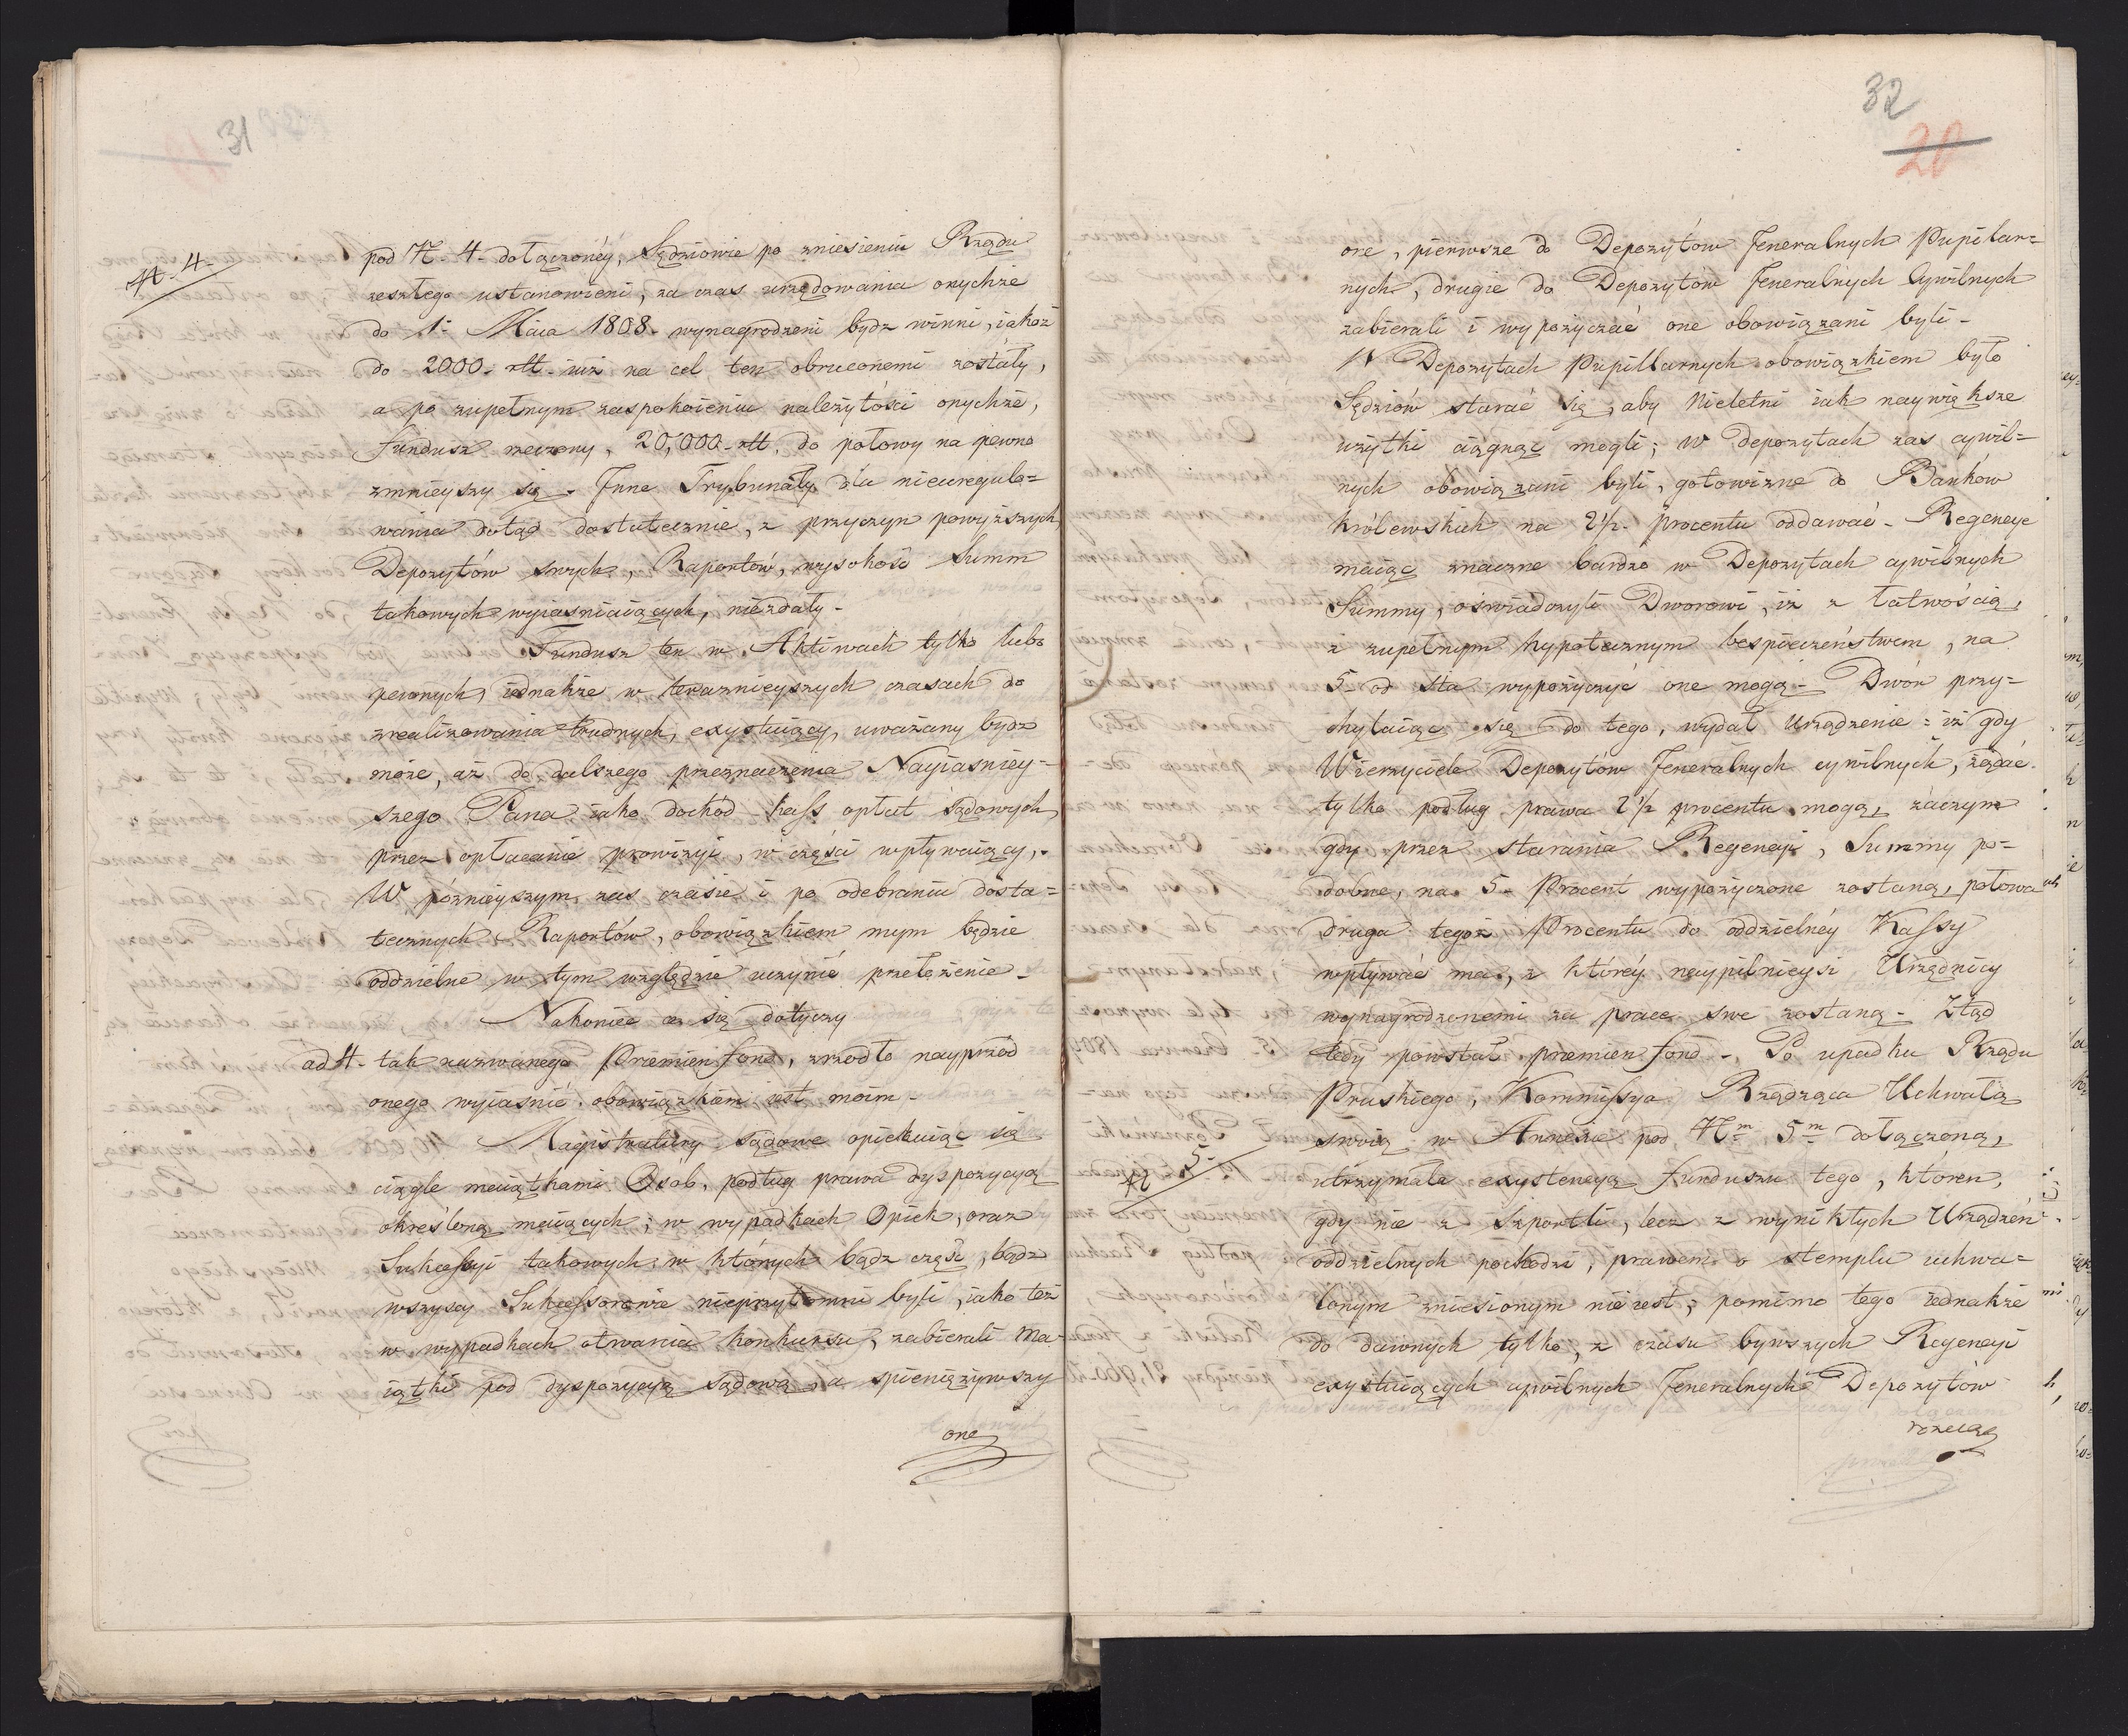 31
N. 4.
pod N. 4. dołączonéy, Sędziowie po zniesieniu Rządu
zeszłego ustanowieni, za czas urzędowania onychże
do 1. Maia 1808. wynagrodzeni bydz winni, iakoż
do 2000. złł. iuż na cel ten obruconemi zostały,
a po zupełnym zaspokoieniu należytości onychże,
fundusz rzeczony, 20,000. złł. do połowy na pewno
zmnieyszy się. Jnne Trybunały dla nieuregulo=
wania dotąd dostatecznie, z przyczyn powyższych
Depozytów swych, Raportów, wysokość Summ
takowych wyiaśniaiących, niezdały.
Fundusz ten w Aktiwach tylko lubo
pewnych, iednakże w teraznieyszych czasach do
zrealizowania trudnych, exystuiący, uważany bydz
może, aż do dalszego przeznaczenia Nayiaśniey=
szego Pana iako dochód kass opłat sądowych
przez opłacanie prowizyi, w części wpływaiący,.
W póznieyszym zas czasie i po odebraniu dosta=
tecznych Raportów, obowiązkiem mym będzie
oddzielne w tym względzie uczynić przełożenie.
Nakoniec co się dotyczy
ad 4. tak nazwanego Præmien fond, zrzodło nayprzod
onego wyiaśnić obowiązkiem iest moim.
Magistratury sądowe opiekuiąc się
ciągle maiątkami Osób, podług prawa dyspozycyą
określoną maiących; w wypadkach Opiek, oraz
Sukcessyi takowych w których bądz część, bądz
wszyscy Sukcessorowie nieprzytomni byli, iako też
w wypadkach otwarcia konkursu, zabierali Ma=
iątki pod dyspozycyą sądową, a spieniężywszy
one
32
20
one, pierwsze do Depozytów Jeneralnych Pupilar=
nych, drugie do Depozytów Jeneralnych Cywilnych
zabierali i wypożyczać one obowiązani byli.
W Depozytach Pupillarnych obowiązkiem było
Sędziów starać się, aby Nieletni iak naywiększe
użytki ciągnąć mogli; w Depozytach zas cywil=
nych obowiązani byli, gotowiznę do Banków
Królewskich na 2½. procentu oddawać. Regencye
maiąc znaczne bardzo w Depozytach cywilnych
Summy, oświadczyli Dworowi, iż z łatwością,
z zupełnym hypotecznym bespieczeństwem, na
5. od sta wypożyczyć one mogą. Dwór przy=
chylaiąc się do tego, wydał Urządzenie: iż gdy
Wierzyciele Depozytów Jeneralnych cywilnych, żądać
tylko podług prawa 2½ procentu mogą, zaczym
gdy przez starania Regencyi, Summy po=
dobne, na 5. Procent wypożyczone zostaną, połowa
druga tegoż Procentu do oddzielnéy Kassy
wpływać ma, z któréy naypilnieysi Urzędnicy
wynagrodzonemi za prace swe zostaną. Ztąd
tedy powstał præmien fond. Po upadku Rządu
Pruskiego, Kommissya Rządząca Uchwałą
swoią w Annexie pod Nm 5m dołączoną,
N 5.
utrzymała exystencyą funduszu tego, któren,
gdy nie z Szportli, lecz z wynikłych Urządzeń
oddzielnych pochodzi, prawem o stemplu uchwa=
lonym zniesionym nie iest; pomimo tego iednakże
do dawnych tylko, z czasu bywszych Regencyi
exystuiących cywilnych Jeneralnych Depozytów
rzecz